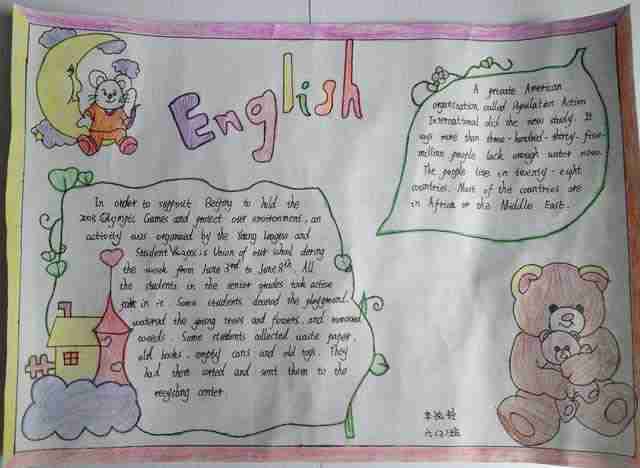 English
A private American
organization called Population Action
International did the new study. It
says more than three-hundred-thirty-five
million people lack enough water now.
The people live in twenty-eight
countries. Most of the countries are
in Africa or the Middle East.
In order to support Beijing to hold the
2008 Olympic Games and protect our environment, an
activity was organized by the Young League and
Student Union of our school during
the week from June 3rd to June 8th. All
the students in the senior grades took active
part in it. Some students cleaned the playground,
watered the young trees and flowers, and removed
weeds. Some students collected waste paper,
old books, empty cans and old toys. They
had them sorted and sent them to the
recycling center.
六(2)班